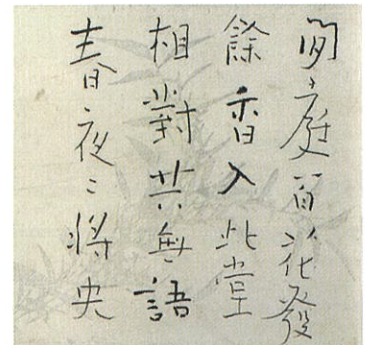 間庭百花發
餘香入此堂
相對共無語
春夜〻將央